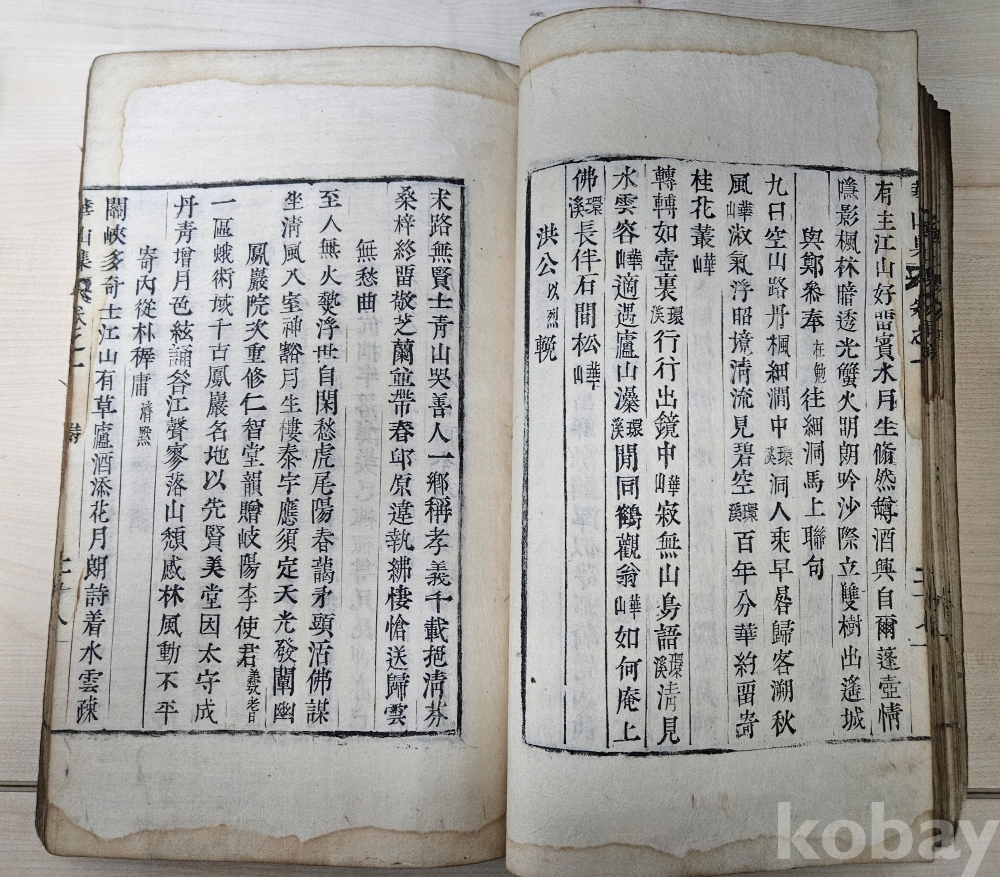 有主江山好留賓水月生翛然罇酒興自爾蓬壺情
隱影楓林暗透光蟹火明朗吟沙際立雙樹出遙城
與鄭叅奉 在勉 往細洞馬上聯句
九日空山路丹楓細澗中 環溪 洞人乘早晷歸客溯秋
風 華山 淑氣浮昭境清流見碧空 環溪 百年分華約留崙
桂花叢 華山
轉轉如壺裏 環溪 行行出鏡中 華山 寂無山鳥語 環溪 清見
水雲容 華山 適遇廬山瀑 環溪 閒同鶴觀翁 華山 如何庵上
佛 環溪 長伴石間松 華山
洪公 以烈 輓
末路無賢士青山哭善人一鄉稱孝義千載挹淸芬
桑梓終留敬芝蘭並帶春邙原違執紼悽愴送歸雲
無愁曲
至人無火熱浮世自閑愁虎尾陽春藹矛頭活佛謀
坐淸風入室神豁月生樓泰宇應須定天光發闡幽
鳳巖院次重修仁智堂韻贈岐陽李使君
一區蛾術域千古鳳巖名地以先賢美堂因太守成
丹靑增月色絃誦答江聲寥落山頹感林風動不平
寄內從朴穉庸
關峽多奇士江山有草廬酒添花月朗詩着水雲疎
華山集 卷之一 詩
kobay